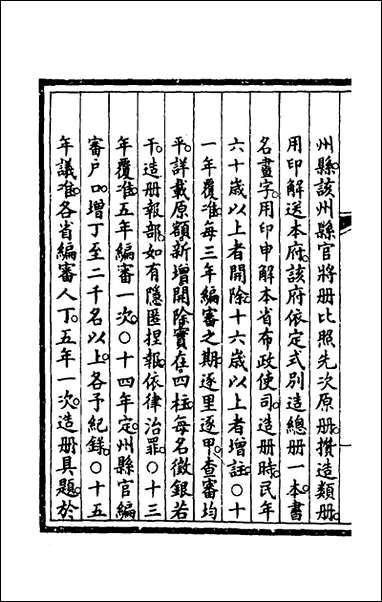 州縣。該州縣官將册比照先次原册。攢造類册。
用印解送本府。該府依定式别造總册一本。書
名畫字。用印申解本省布政使司。造册時。民年
六十歲以上者開除。十六歲以上者增註。○十
一年覆准。每三年編審之期。逐里逐甲。查審均
平。詳載原額新增開除實在四柱。每名徵銀若
干。造册報部。如有隱匿捏報。依律治罪。○十三
年覆准。五年編審一次。○十四年定。州縣官編
審户口。增丁至二千名以上。各予紀錄。○十五
年議准。各省編審人丁。五年一次。造册具題。於